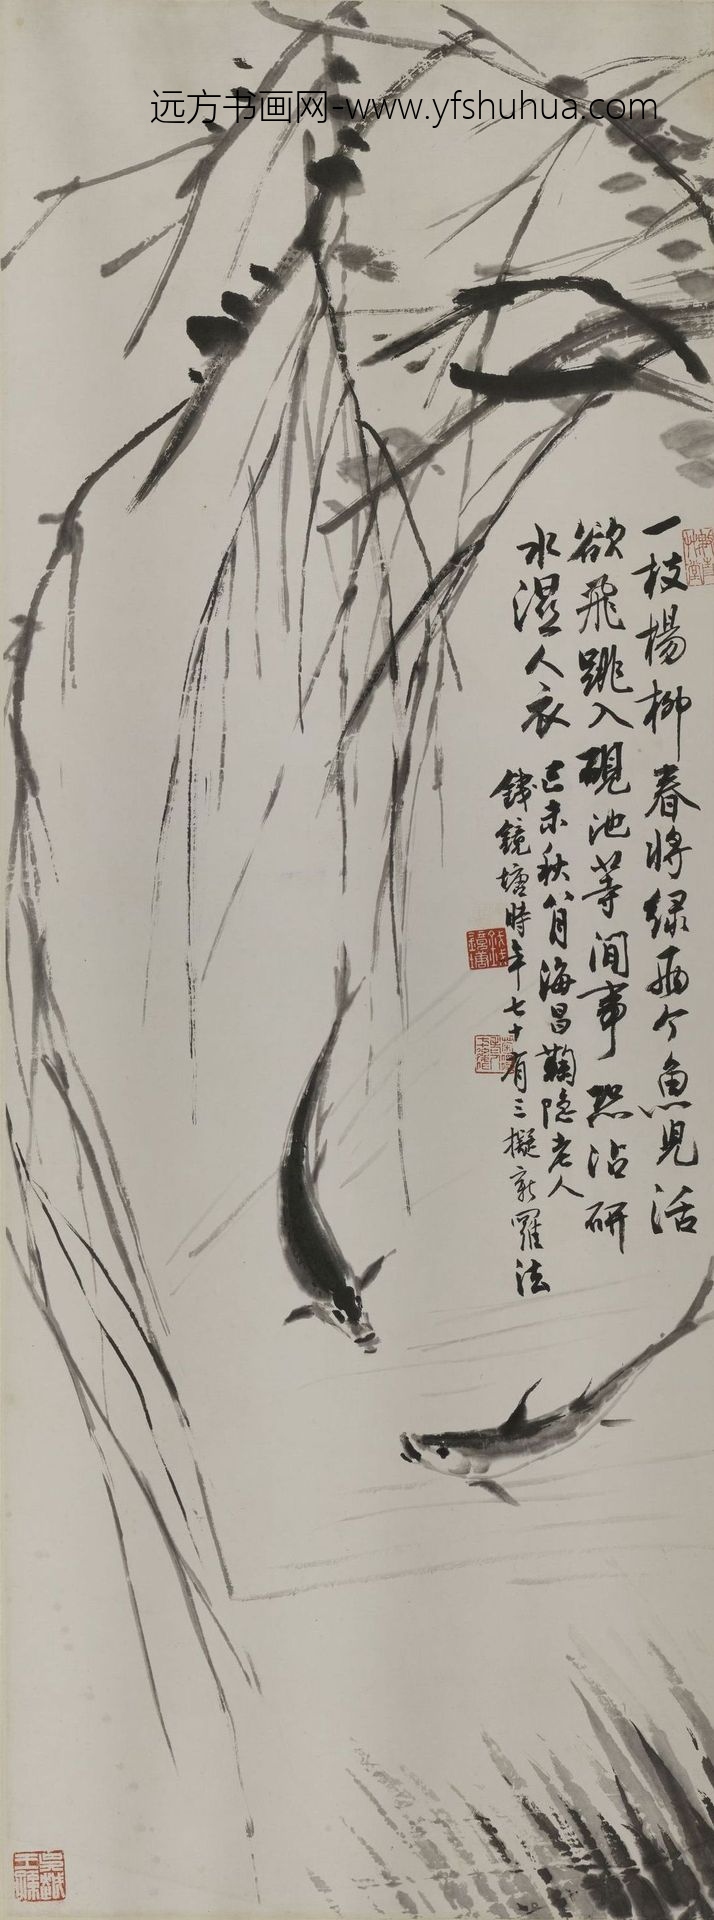 远方书画网-www.yfshuhua.com
一枝楊柳春將綠兩个魚兒活
欲飛跳入硯池等閒事恐沾研
水濕人衣
己未秋八月海昌鞠隐老人
錢鏡塘時年七十有三擬新羅法